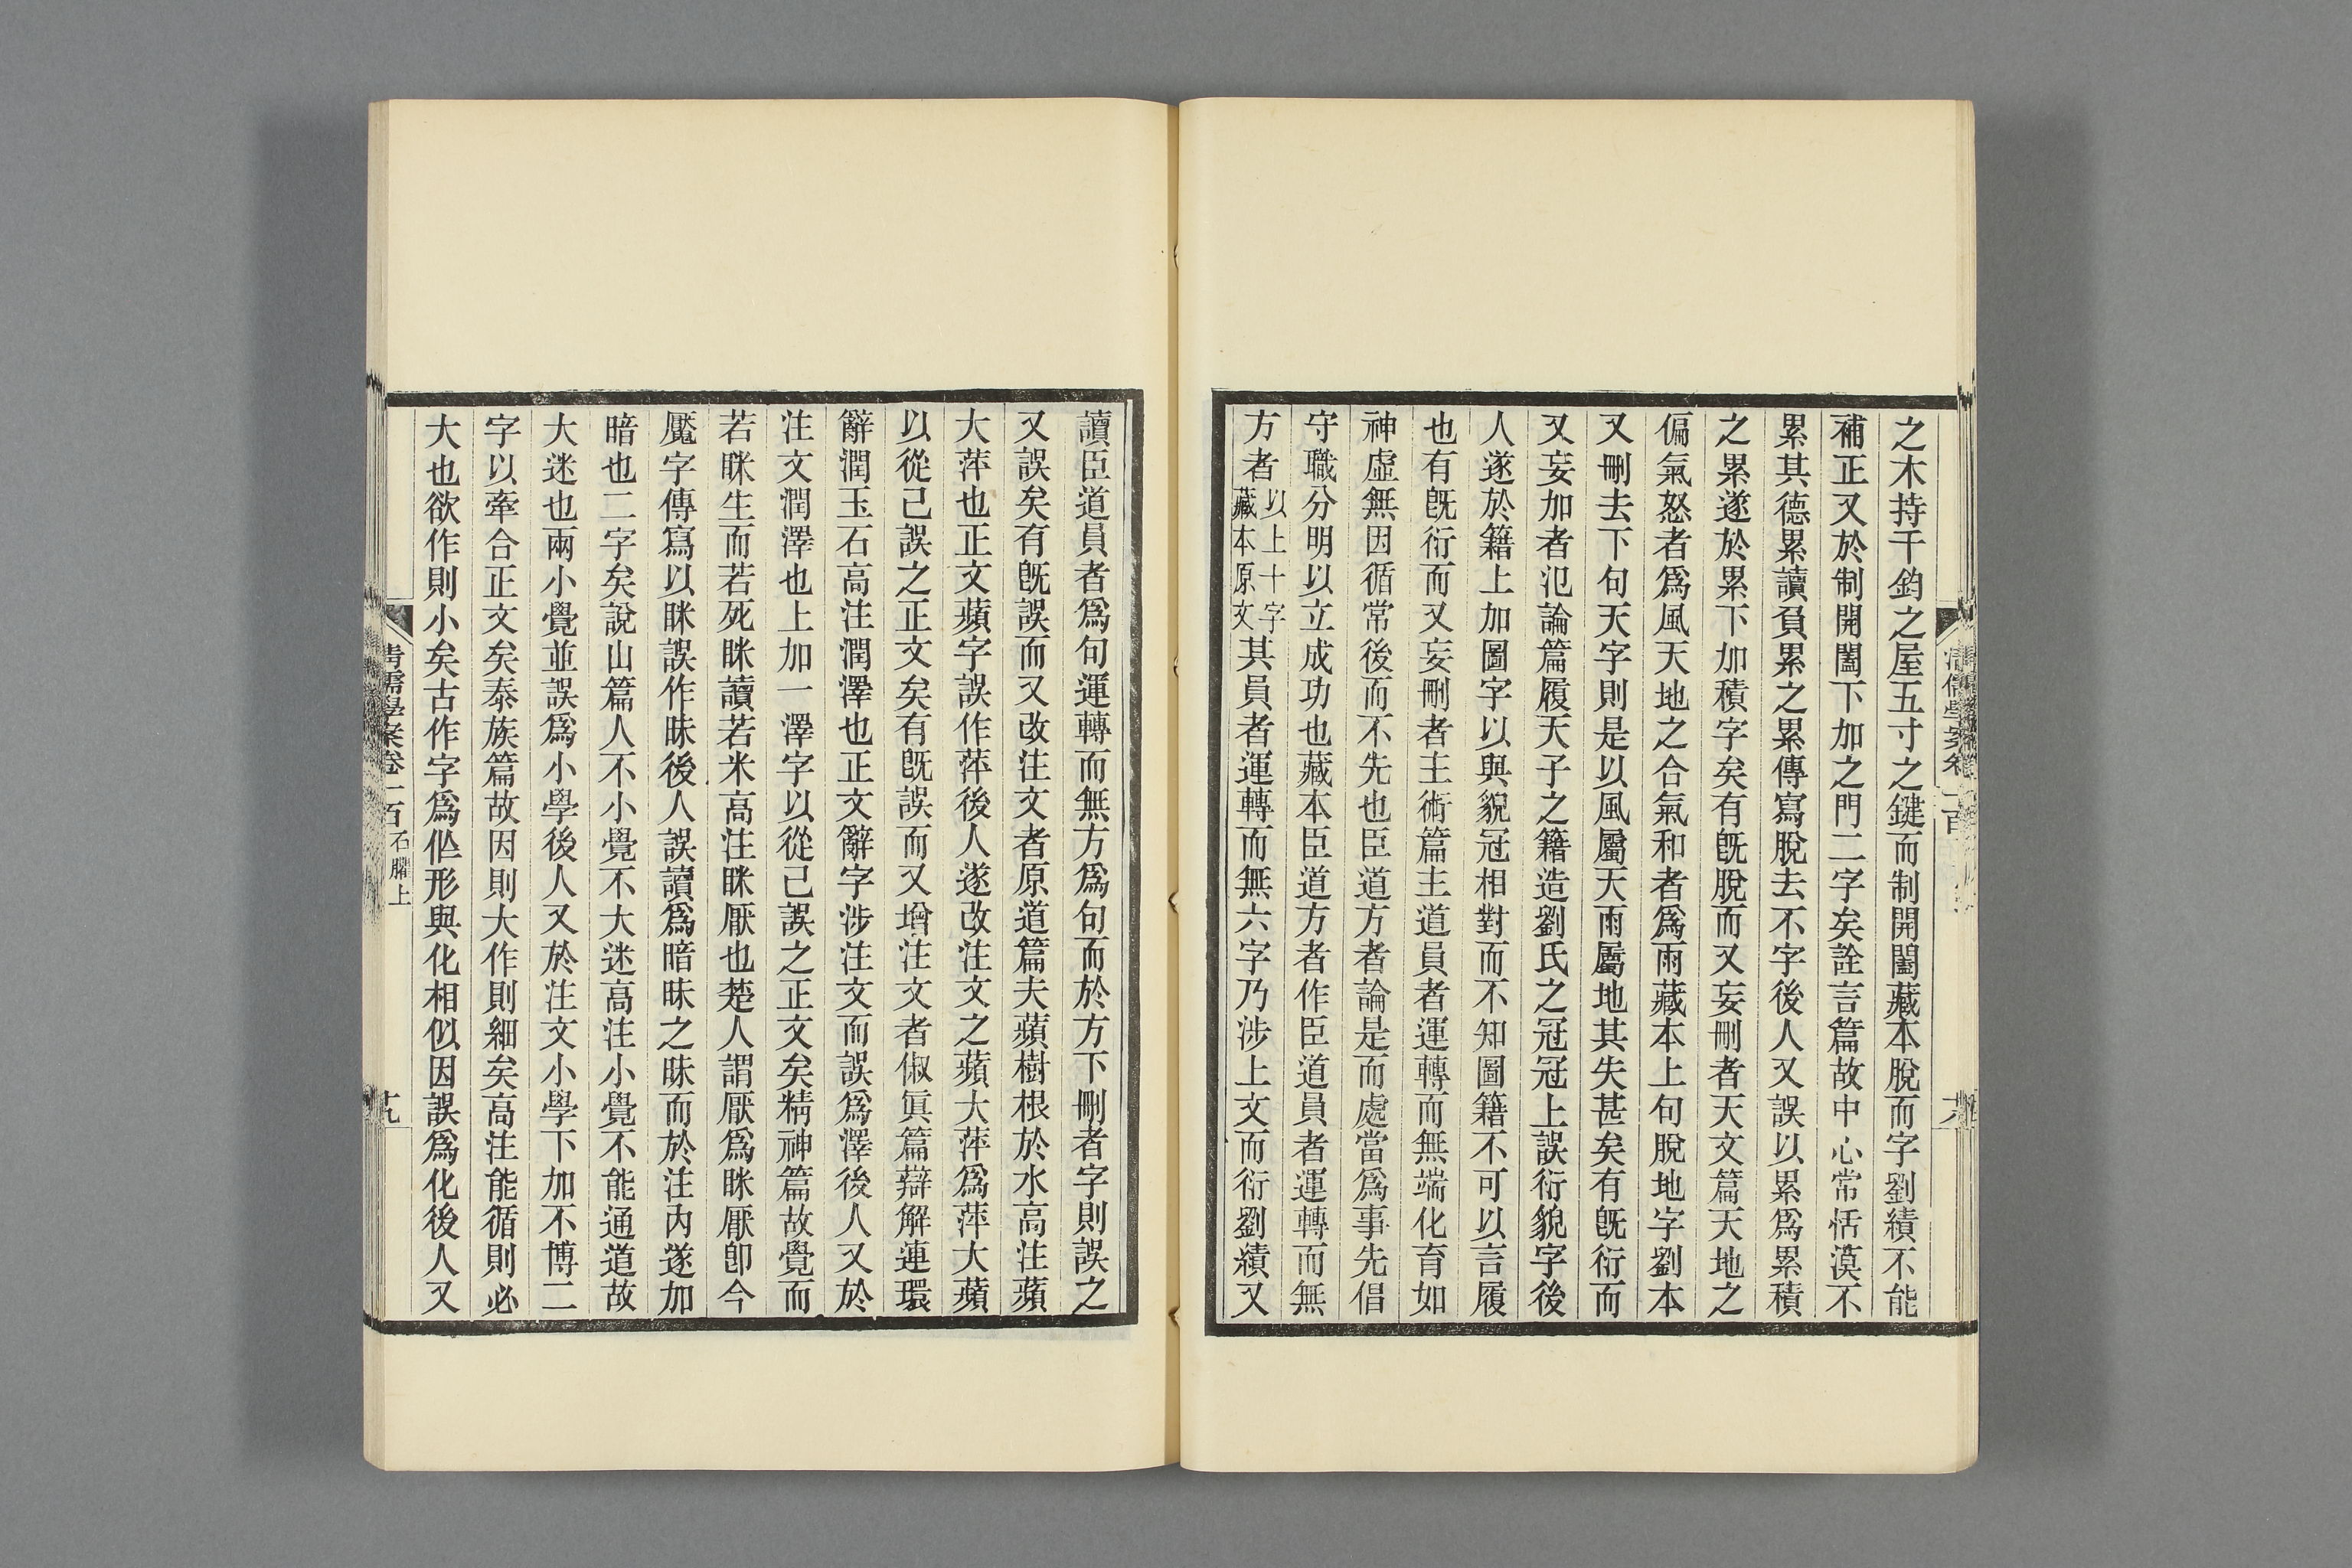 之木持千鈞之屋五寸之鍵而制開闔藏本脫而字劉績不能
補正又於制開闔下加之門二字矣詮言篇故中心常恬漠不
累其德累讀負累之累傳寫脫去不字後人又誤以累爲累積
之累遂於累下加積字矣有旣脫而又妄刪者天文篇天地之
偏氣怒者爲風天地之合氣和者爲雨藏本上句脫地字劉本
又刪去下句天字則是以風屬天雨屬地其失甚矣有旣衍而
又妄加者氾論篇履天子之籍造劉氏之冠冠上誤衍貌字後
人遂於籍上加圖字以與貌冠相對而不知圖籍不可以言履
也有旣衍而又妄刪者主術篇主道員者運轉而無端化育如
神虛無因循常後而不先也臣道方者論是而處當爲事先倡
守職分明以立成功也藏本臣道方者作臣道員者運轉而無
方者以上十字藏本原文其員者運轉而無六字乃涉上文而衍劉績又
讀臣道員者爲句運轉而無方爲句而於方下刪者字則誤之
又誤矣有旣誤而又改注文者原道篇夫蘋樹根於水高注蘋
大萍也正文蘋字誤作萍後人遂改注文之蘋大萍爲萍大蘋
以從己誤之正文矣有旣誤而又增注文者俶眞篇辯解連環
辭潤玉石高注潤澤也正文辭字涉注文而誤爲澤後人又於
注文潤澤也上加一澤字以從己誤之正文矣精神篇故覺而
若眯生而若死眯讀若米高注眯厭也楚人謂厭爲眯厭卽今
魘字傳寫以眯誤作昧後人誤讀爲暗昧之昧而於注內遂加
暗也二字矣說山篇人不小覺不大迷高注小覺不能通道故
大迷也兩小覺並誤爲小學後人又於注文小學下加不博二
字以牽合正文矣泰族篇故因則大作則細矣高注能循則必
大也欲作則小矣古作字爲㑅形與化相似因誤爲化後人又
清儒學案卷一百 石臞上 十九